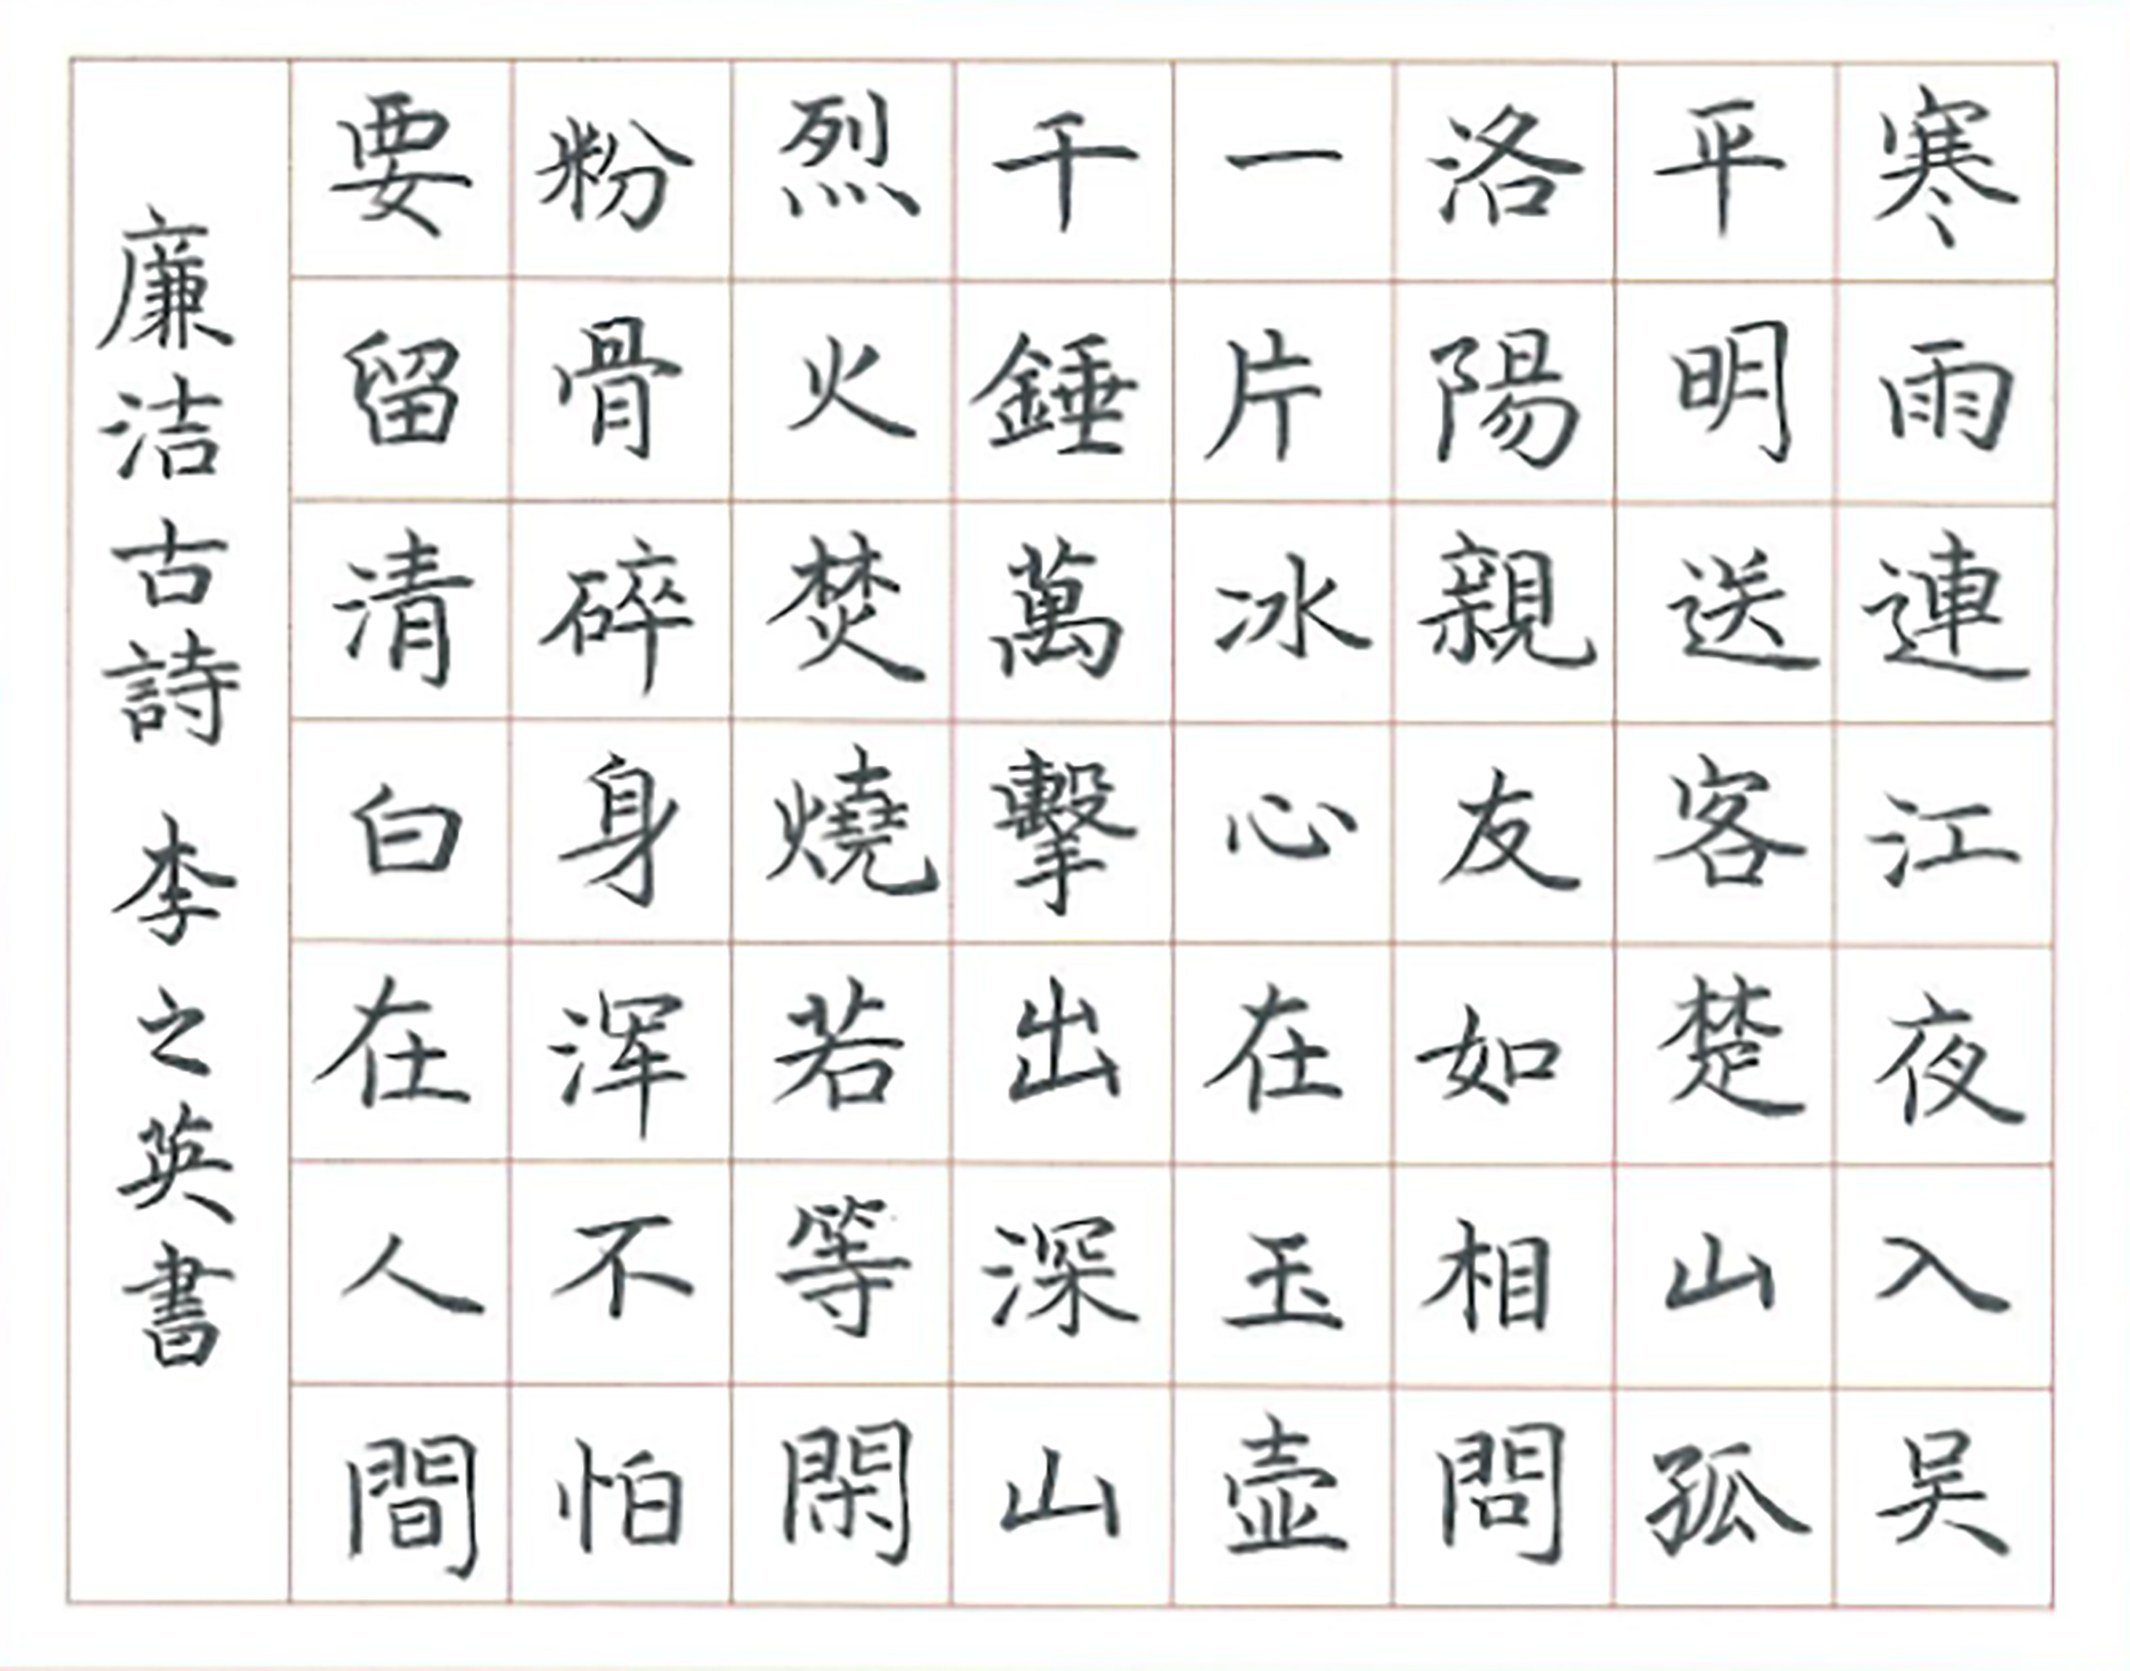 寒雨連江夜入吴
平明送客楚山孤
洛陽親友如相問
一片冰心在玉壺
千錘萬擊出深山
烈火焚燒若等閑
粉骨碎身浑不怕
要留清白在人間
廉洁古詩 李之英書